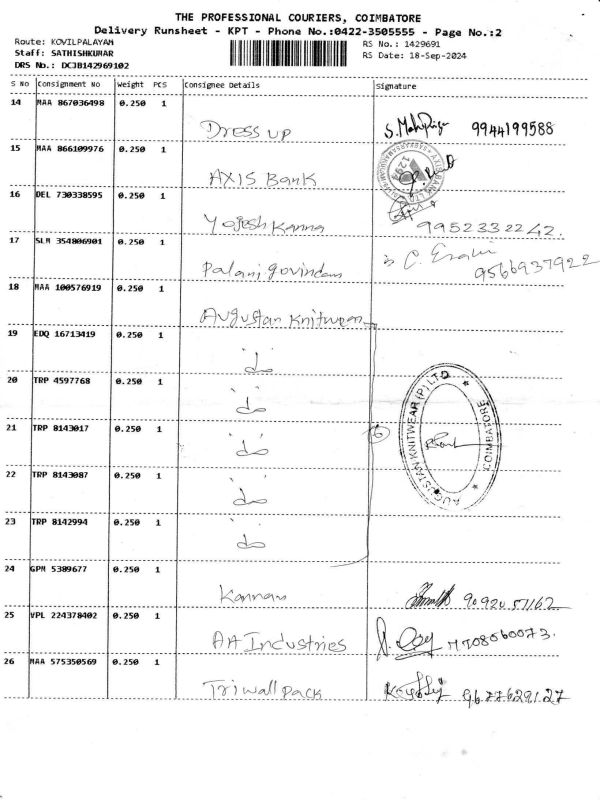 THE PROFESSIONAL COURIERS, COIMBATORE
Delivery Runsheet - KPT - Phone No.:0422-3505555 - Page No.:2
Route: KOVILPALAYAM RS No.: 1429691
Staff: SATHISHKUMAR RS Date: 18-Sep-2024
DRS No.: DCJB142969102
S No Consignment No Weight PCS Consignee Details Signature
14 MAA 867036498 0.250 1
Dress up 9944199588
15 MAA 866109976 0.250 1
AXIS Bank
16 DEL 730338595 0.250 1
Yogesh Kanna 9952332242.
17 SLM 354806901 0.250 1
Palani govindam 9566937922
18 MAA 100576919 0.250 1
Augustan Knitwear
19 EDQ 16713419 0.250 1
do
20 TRP 4597768 0.250 1
do
21 TRP 8143017 0.250 1
do
22 TRP 8143087 0.250 1
do
23 TRP 8142994 0.250 1
do
AUGUSTAN KNITWEAR (P) LTD
COIMBATORE
24 GPM 5389677 0.250 1
Kannan 90920 51162
25 VPL 224378402 0.250 1
AA Industries 7708560073.
26 MAA 575350569 0.250 1
Triwall pack 9677629127